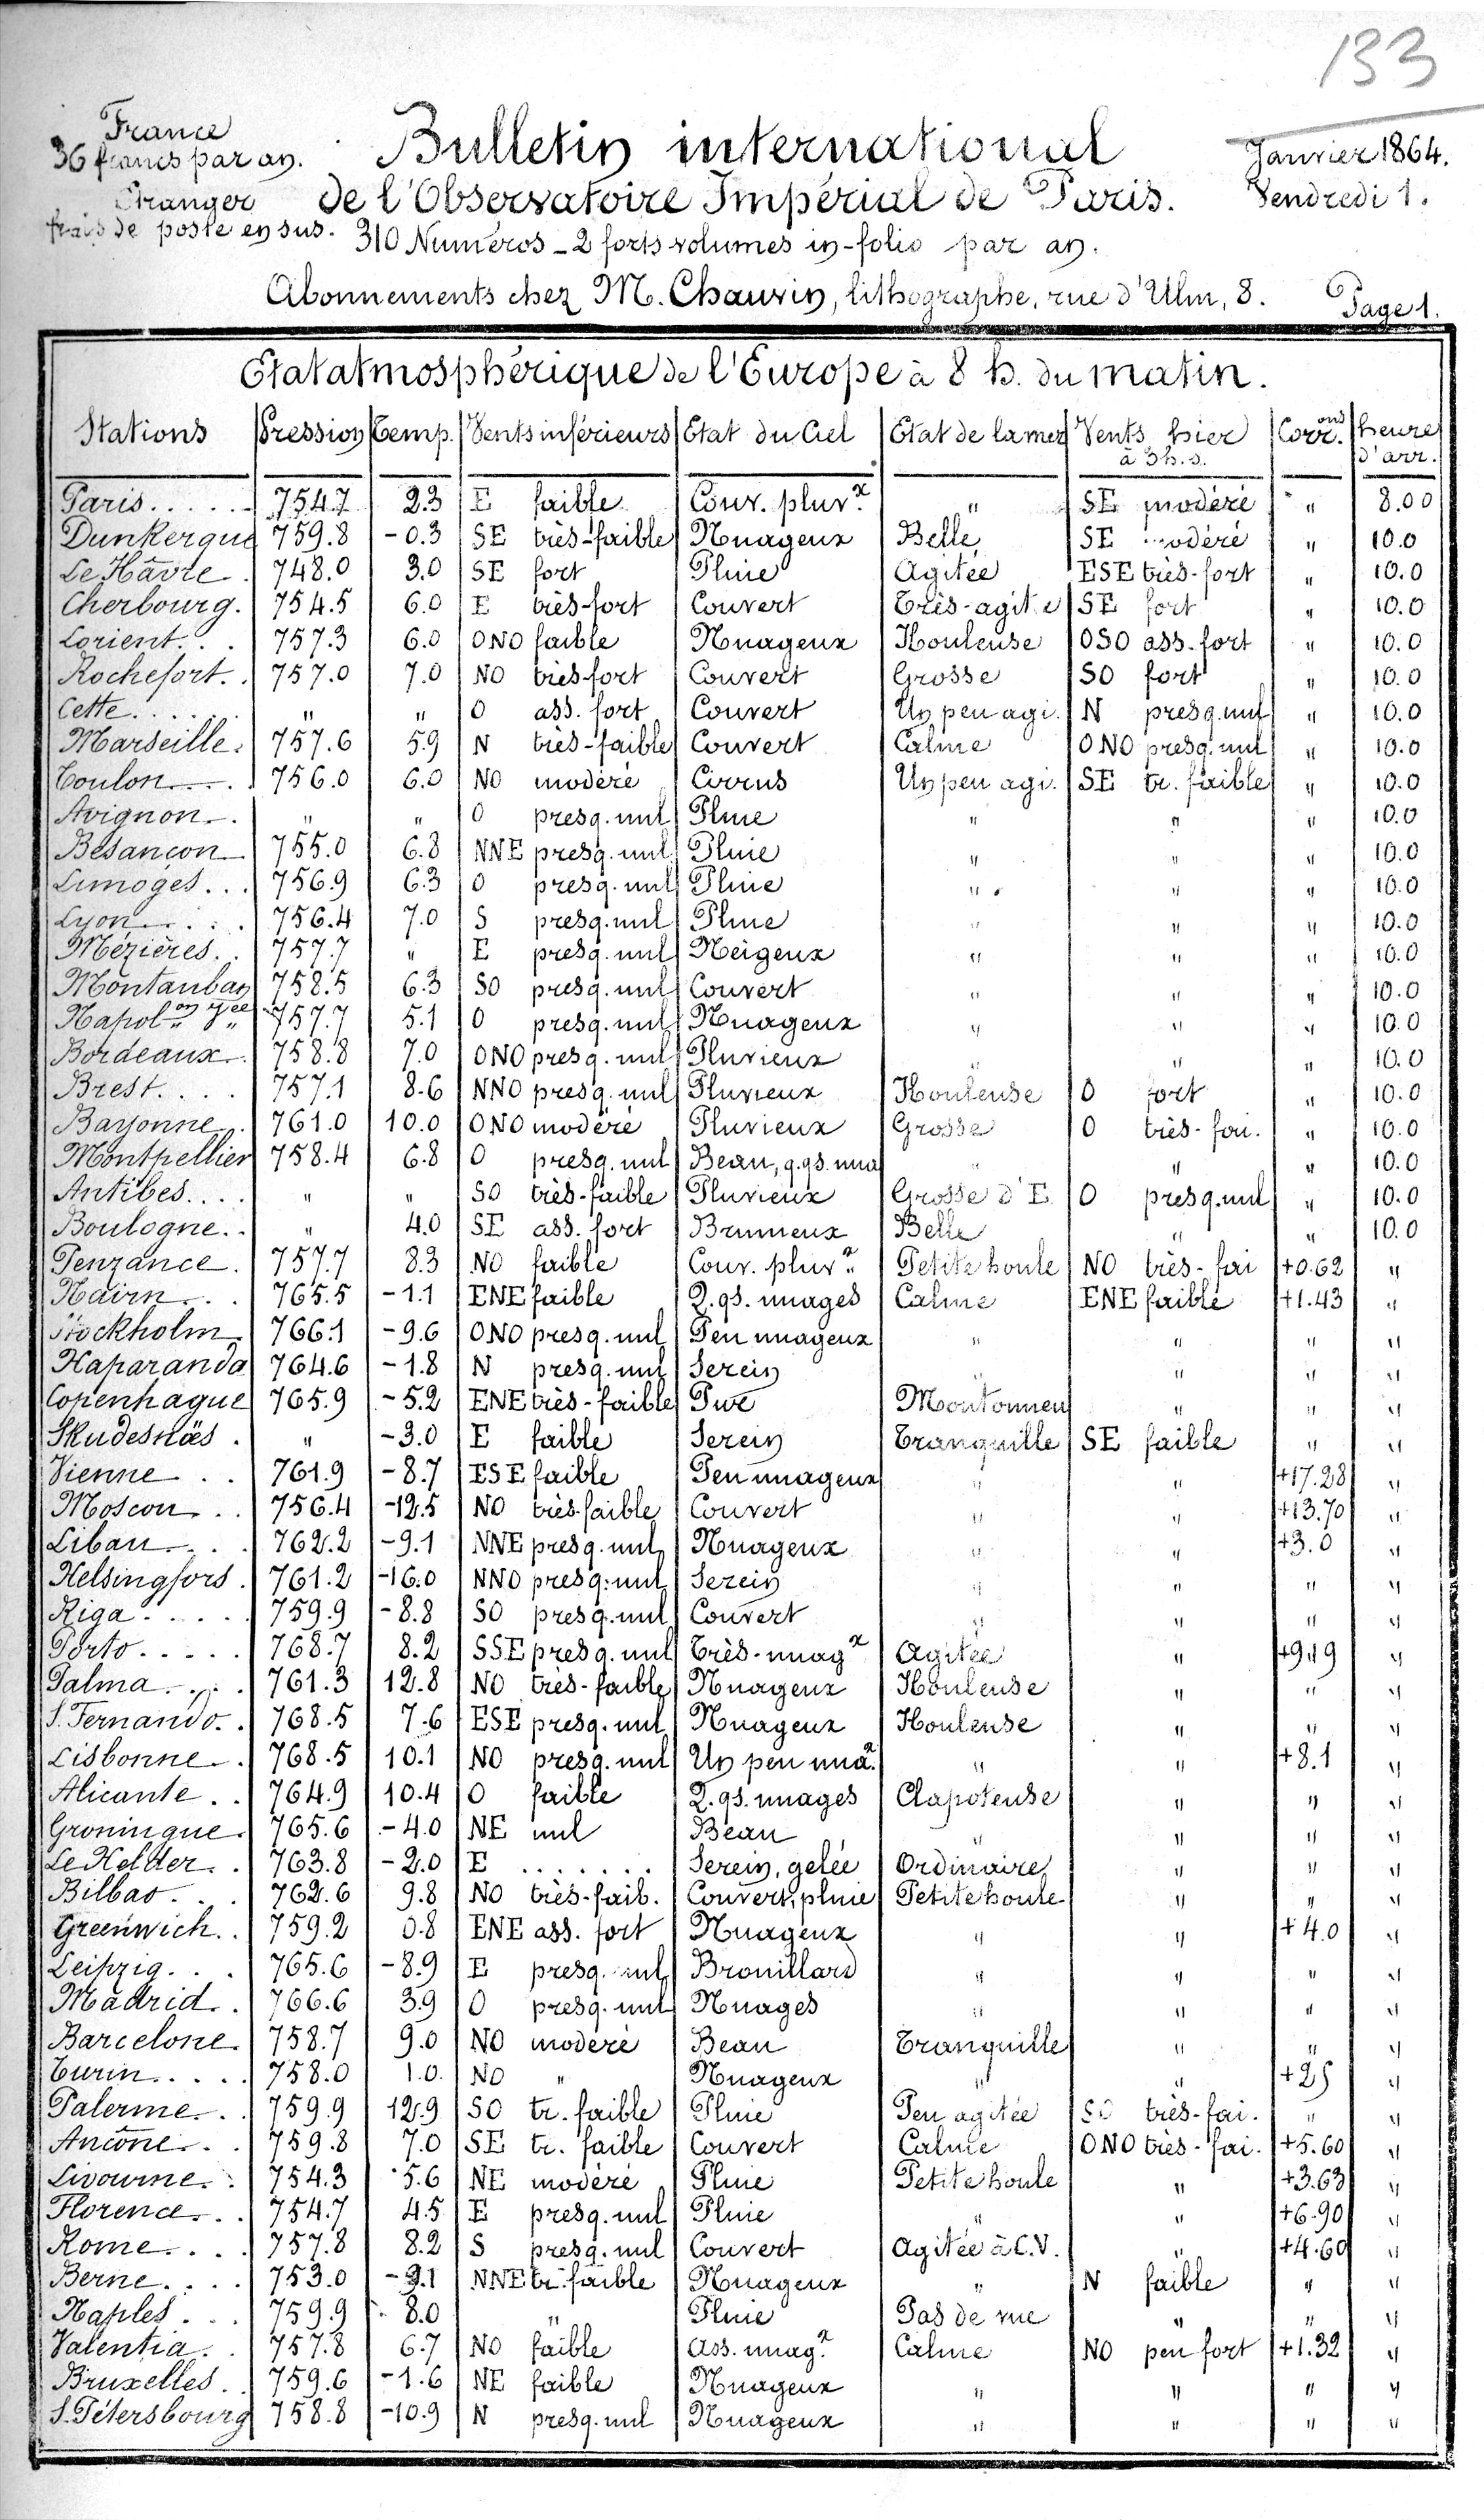 133
France
36 francs par an.
Etranger
frais de poste en sus.
Bulletin international
de l'Observatoire Impérial de Paris.
310 Numéros _ 2 forts volumes in-folio par an.
Abonnements chez M. Chauvin, lithographe, rue d'Ulm, 8.
Janvier 1864.
Vendredi 1.
Page 1.
Etat atmosphérique de l'Europe à 8 h. du matin.
Stations Pression Temp. Vents inférieurs Etat du Ciel Etat de la mer Vents hier à 3 h. s. Corr.ons heure d'arr.
Paris..... 754.7 2.3 E faible Couv. pluvx. " SE modéré " 8.00
Dunkerque 759.8 -0.3 SE très-faible Nuageux Belle SE modéré " 10.0
Le Hâvre. 748.0 3.0 SE fort Pluie Agitée ESE très-fort " 10.0
Cherbourg. 754.5 6.0 E très-fort Couvert Très-agitée SE fort " 10.0
Lorient... 757.3 6.0 ONO faible Nuageux Houleuse OSO ass. fort " 10.0
Rochefort.. 757.0 7.0 NO très fort Couvert Grosse SO fort " 10.0
Cette..... " " O ass. fort Couvert Un peu agi. N presq. nul " 10.0
Marseille. 757.6 5.9 N très-faible Couvert Calme ONO presq. nul " 10.0
Toulon.... 756.0 6.0 NO modéré Cirrus Un peu agi. SE tr. faible " 10.0
Avignon.. " " O presq. nul Pluie " " " 10.0
Besançon 755.0 6.8 NNE presq. nul Pluie " " " 10.0
Limoges... 756.9 6.3 O presq. nul Pluie " " " 10.0
Lyon.... 756.4 7.0 S presq. nul Pluie " " " 10.0
Mézières.. 757.7 " E presq. nul Neigeux " " " 10.0
Montauban 758.5 6.3 SO presq. nul Couvert " " " 10.0
Napol.on Vee 757.7 5.1 O presq. nul Nuageux " " " 10.0
Bordeaux. 758.8 7.0 ONO presq. nul Pluvieux " " " 10.0
Brest.... 757.1 8.6 NNO presq. nul Pluvieux Houleuse O fort " 10.0
Bayonne. 761.0 10.0 ONO modéré Pluvieux Grosse O très-fai. " 10.0
Montpellier 758.4 6.8 O presq. nul Beau, q.qs. nua " " " 10.0
Antibes.... " " SO très-faible Pluvieux Grosse d'E. O presq. nul " 10.0
Boulogne.. " 4.0 SE ass. fort Brumeux Belle " " 10.0
Penzance. 757.7 8.3 NO faible Couv. pluvx. Petite houle NO très-fai +0.62 "
Nairn... 765.5 -1.1 ENE faible Q.qs. nuages Calme ENE faible +1.43 "
Stockholm 766.1 -9.6 ONO presq. nul Peu nuageux " " " "
Haparanda 764.6 -1.8 N presq. nul Serein " " " "
Copenhague 765.9 -5.2 ENE très-faible Pur Moutonneu " " "
Skudesnäes. " -3.0 E faible Serein Tranquille SE faible " "
Vienne.. 761.9 -8.7 ESE faible Peu nuageux " " +17.28 "
Moscou.. 756.4 -12.5 NO très-faible Couvert " " +13.70 "
Libau... 762.2 -9.1 NNE presq. nul Nuageux " " +3.0 "
Helsingfors. 761.2 -16.0 NNO presq. nul Serein " " " "
Riga..... 759.9 -8.8 SO presq. nul Couvert " " " "
Porto..... 768.7 8.2 SSE presq. nul Très-nuagx Agitée " "
Palma.... 761.3 12.8 NO très-faible Nuageux Houleuse " " "
S. Fernando.. 768.5 7.6 ESE presq. nul Nuageux Houleuse " " "
Lisbonne.. 768.5 10.1 NO presq. nul Un peu nuax. " " +8.1 "
Alicante.. 764.9 10.4 O faible Q.qs. nuages Clapoteuse " " "
Groningue. 765.6 -4.0 NE nul Beau " " " "
Le Helder.. 763.8 -2.0 E ....... Serein, gelée Ordinaire " " "
Bilbao... 762.6 9.8 NO très-faib. Couvert, pluie Petite houle " " "
Greenwich.. 759.2 0.8 ENE ass. fort Nuageux " " +4.0 "
Leipzig... 765.6 -8.9 E presq. nul Brouillard " " " "
Madrid.. 766.6 3.9 O presq. nul Nuages " " " "
Barcelone. 758.7 9.0 NO modéré Beau Tranquille " " "
Turin..... 758.0 1.0. NO " Nuageux " " "
Palerme... 759.9 12.9 SO tr. faible Pluie Peu agitée SO très-fai. " "
Ancône... 759.8 7.0 SE tr. faible Couvert Calme ONO très-fai. +5.60 "
Livourne.. 754.3 5.6 NE modéré Pluie Petite houle " +3.63 "
Florence... 754.7 4.5 E presq. nul Pluie " " +6.90 "
Rome.... 757.8 8.2 S presq. nul Couvert Agitée à C.V. " +4.60 "
Berne.... 753.0 NNE tr. faible Nuageux " N faible " "
Naples... 759.9 8.0 " Pluie Pas de vue " " "
Valentia.. 757.8 6.7 NO faible Ass. nuagx. Calme NO peu fort +1.32 "
Bruxelles. 759.6 -1.6 NE faible Nuageux " " " "
S. Pétersbourg 758.8 -10.9 N presq. nul Nuageux " " " "